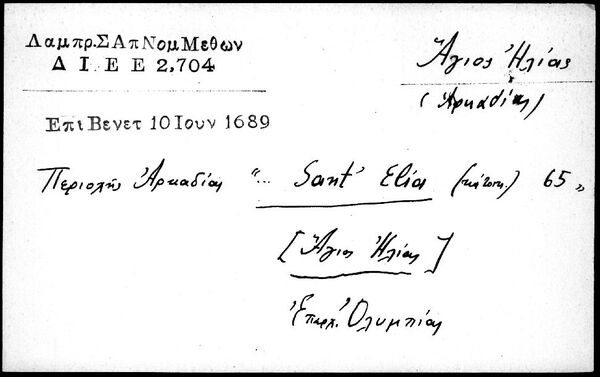 Λαμπρ.ΣΑπΝομΜεθων
Δ Ι Ε Ε 2,704
Ἅγιος Ἠλίας
(Ἀρκαδίας)
ΕπιΒενετ 10 Ιουν 1689
Περιοχῆς Ἀρκαδίας "... Sant' Elia (κάτοικ.) 65 „
[Ἅγιος Ἠλίας]
Ἐπαρχ. Ὀλυμπίας